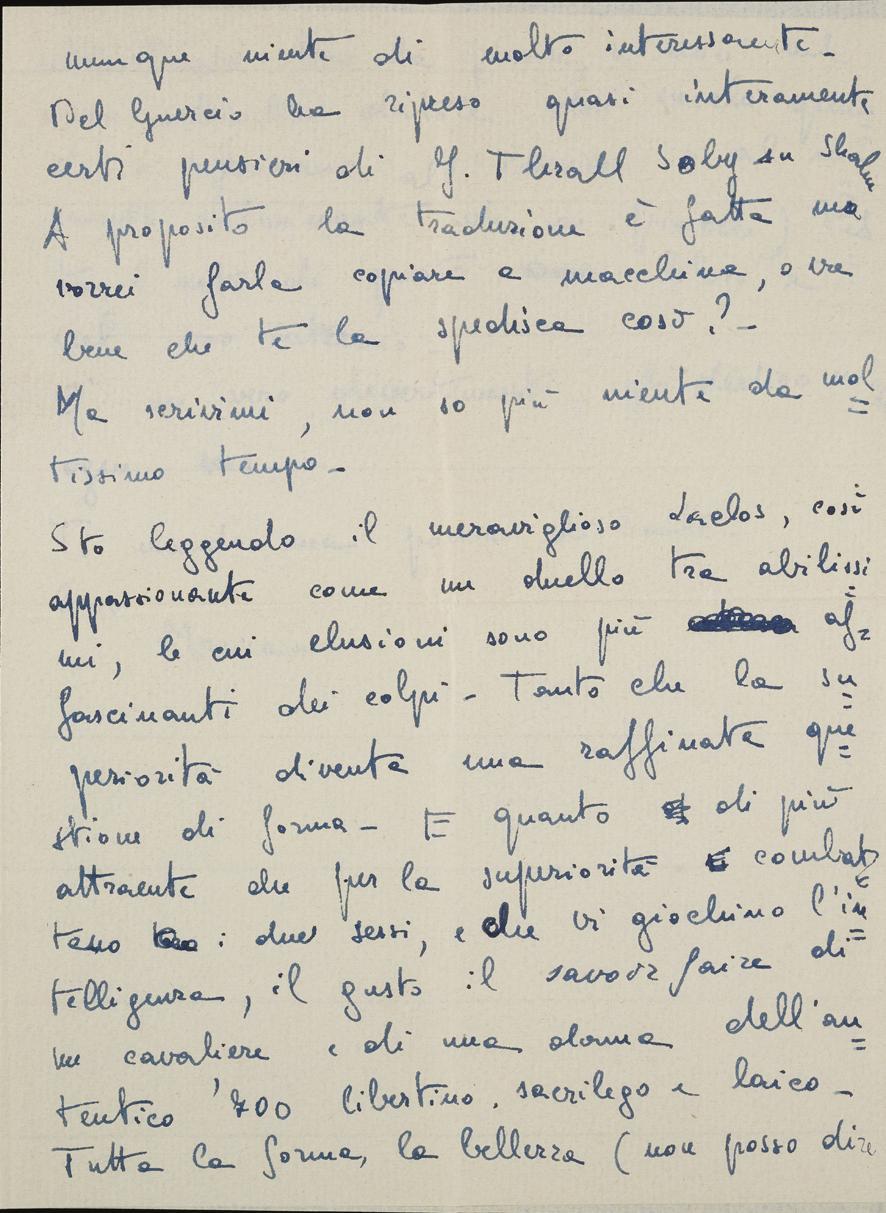 munque niente di molto interessante -
Del Guercio ha ripreso quasi interamente
certi pensieri di J. Thrall Soby su Shahn
A proposito la traduzione è fatta ma
vorrei farla copiare a macchina, o va
bene che te la spedisca così? -
Ma scrivimi, non so più niente da mol=
tissimo tempo -
Sto leggendo il meraviglioso Laclos, così
appassionante come un duello tra abilissi=
mi, le cui elusioni sono più af=
fascinanti dei colpi - Tanto che la su=
periorità diventa una raffinata que=
stione di forma - E quanto di più
attraente che per la superiorità combat=
tano i due sessi, e che vi giochino l'in=
telligenza, il gusto il savoir faire di
un cavaliere e di una donna dell'au=
tentico '700 libertino, sacrilego e laico -
Tutta la forma, la bellezza (non posso dire